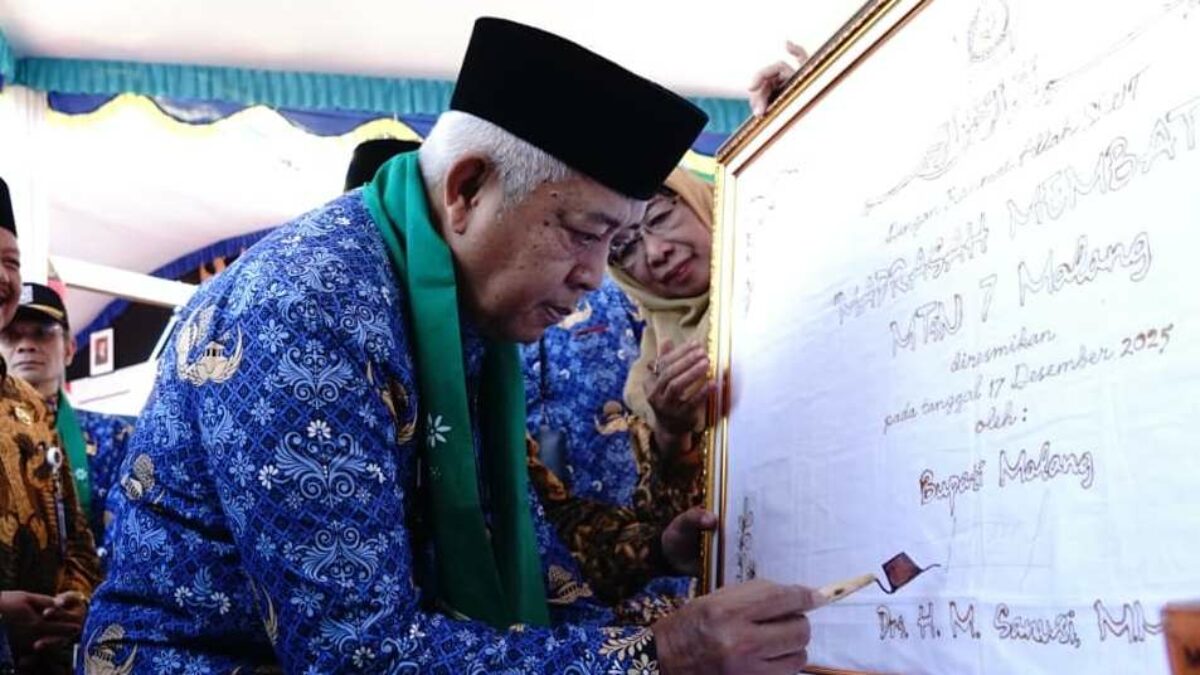 Dengan Rahmat Allah SWT
MADRASAH MEMBAT
MTsN 7 Malang
diresmikan
pada tanggal 17 Desember 2025
oleh :
Bupati Malang
Drs. H. M. Sanusi, M.M